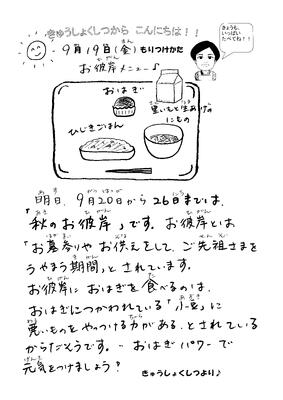 きゅうしょくしつから こんにちは！！
きょうも、
いっぱい
たべてね！！
9月19日(金) もりつけかた
お彼岸メニュー♪
おはぎ
里いもと生あげの
にもの
ひじきごはん
明日、9月20日から26日までは、
「秋のお彼岸」です。お彼岸とは
「お墓参りや お供えをして、ご先祖さまを
うやまう期間」とされています。
お彼岸に おはぎを 食べるのは、
おはぎにつかわれている「小豆」に
悪いものをやっつける力がある、とされている
からだそうです。 おはぎパワーで
元気をつけましょう？
きゅうしょくしつより♪